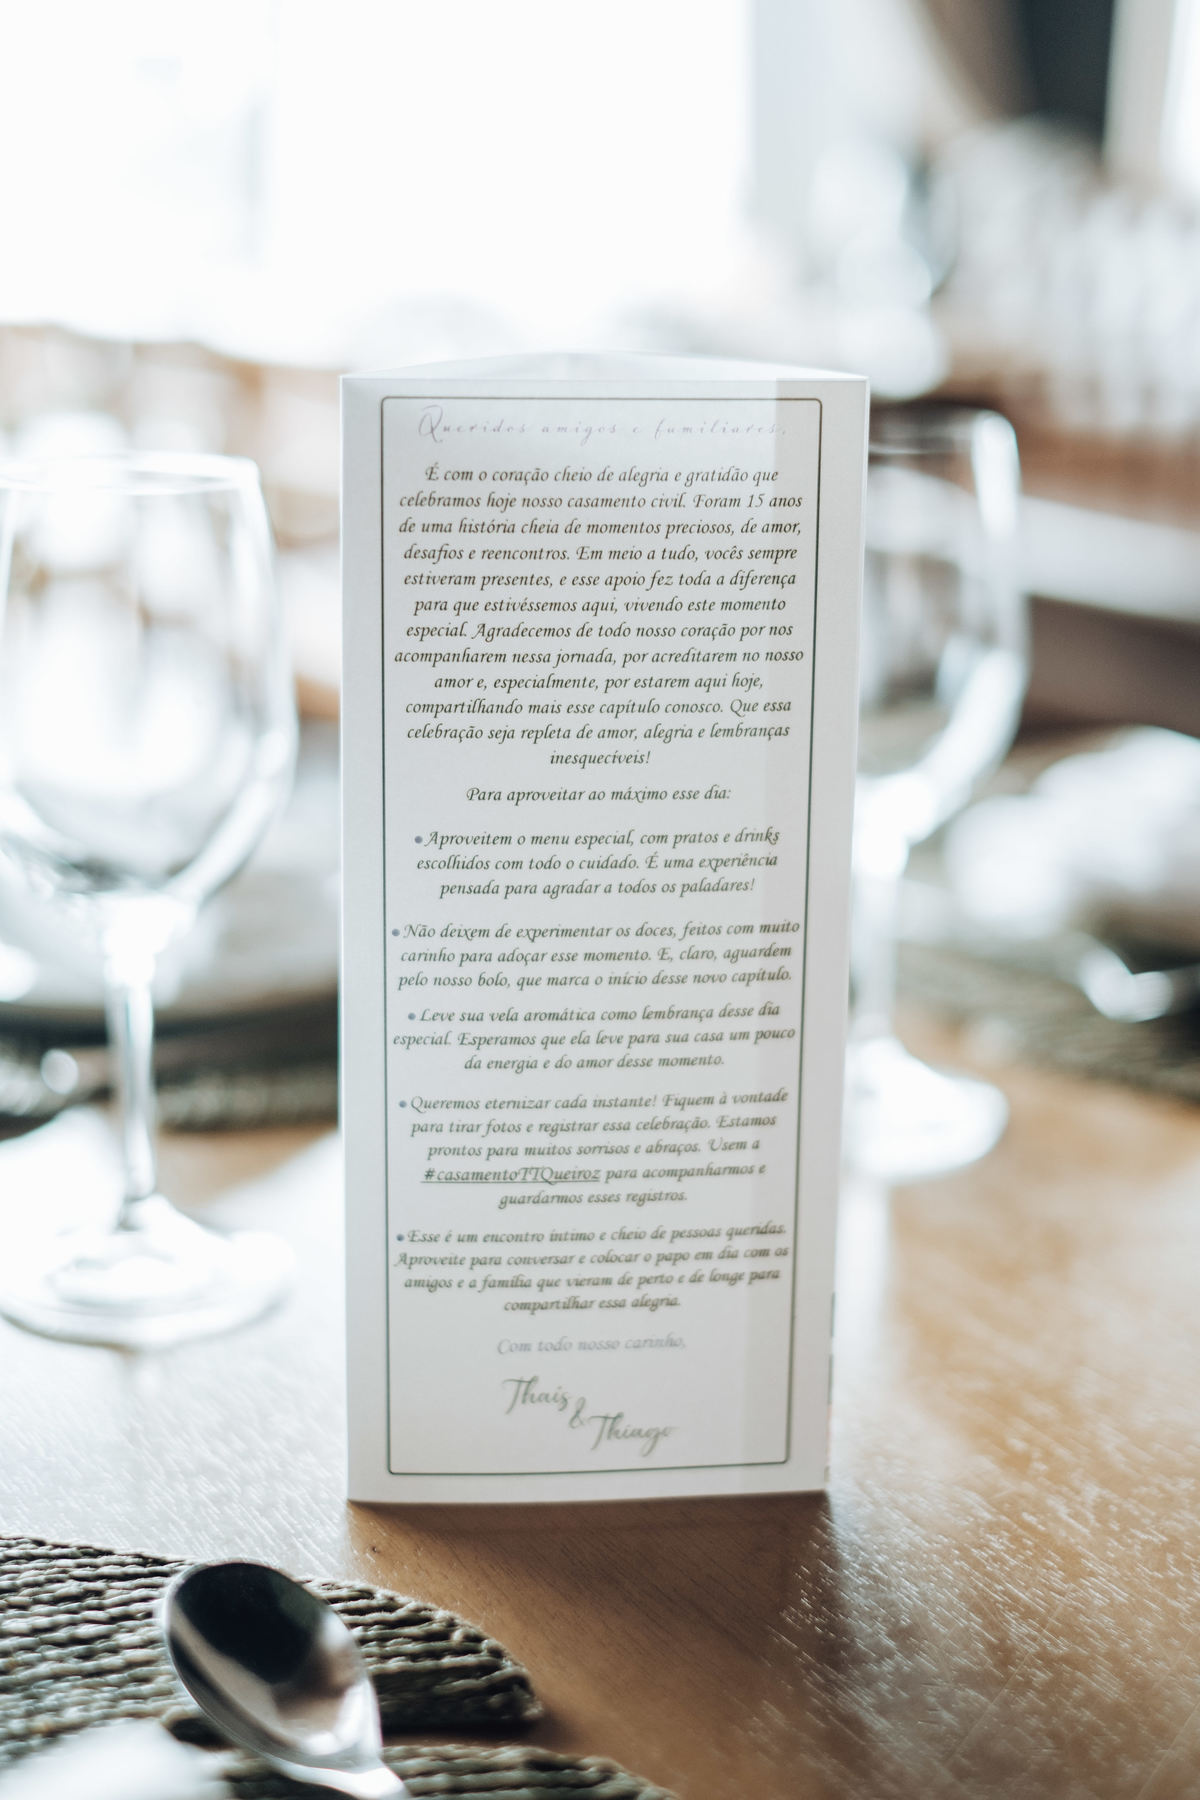 Queridos amigos e familiares,
É com o coração cheio de alegria e gratidão que
celebramos hoje nosso casamento civil. Foram 15 anos
de uma história cheia de momentos preciosos, de amor,
desafios e reencontros. Em meio a tudo, vocês sempre
estiveram presentes, e esse apoio fez toda a diferença
para que estivéssemos aqui, vivendo este momento
especial. Agradecemos de todo nosso coração por nos
acompanharem nessa jornada, por acreditarem no nosso
amor e, especialmente, por estarem aqui hoje,
compartilhando mais esse capítulo conosco. Que essa
celebração seja repleta de amor, alegria e lembranças
inesquecíveis!
Para aproveitar ao máximo esse dia:
• Aproveitem o menu especial, com pratos e drinks
escolhidos com todo o cuidado. É uma experiência
pensada para agradar a todos os paladares!
• Não deixem de experimentar os doces, feitos com muito
carinho para adoçar esse momento. E, claro, aguardem
pelo nosso bolo, que marca o início desse novo capítulo.
• Leve sua vela aromática como lembrança desse dia
especial. Esperamos que ela leve para sua casa um pouco
da energia e do amor desse momento.
• Queremos eternizar cada instante! Fiquem à vontade
para tirar fotos e registrar essa celebração. Estamos
prontos para muitos sorrisos e abraços. Usem a
#casamentoTTQueiroz para acompanharmos e
guardarmos esses registros.
• Esse é um encontro íntimo e cheio de pessoas queridas.
Aproveite para conversar e colocar o papo em dia com os
amigos e a família que vieram de perto e de longe para
compartilhar essa alegria.
Com todo nosso carinho,
Thais
&
Thiago